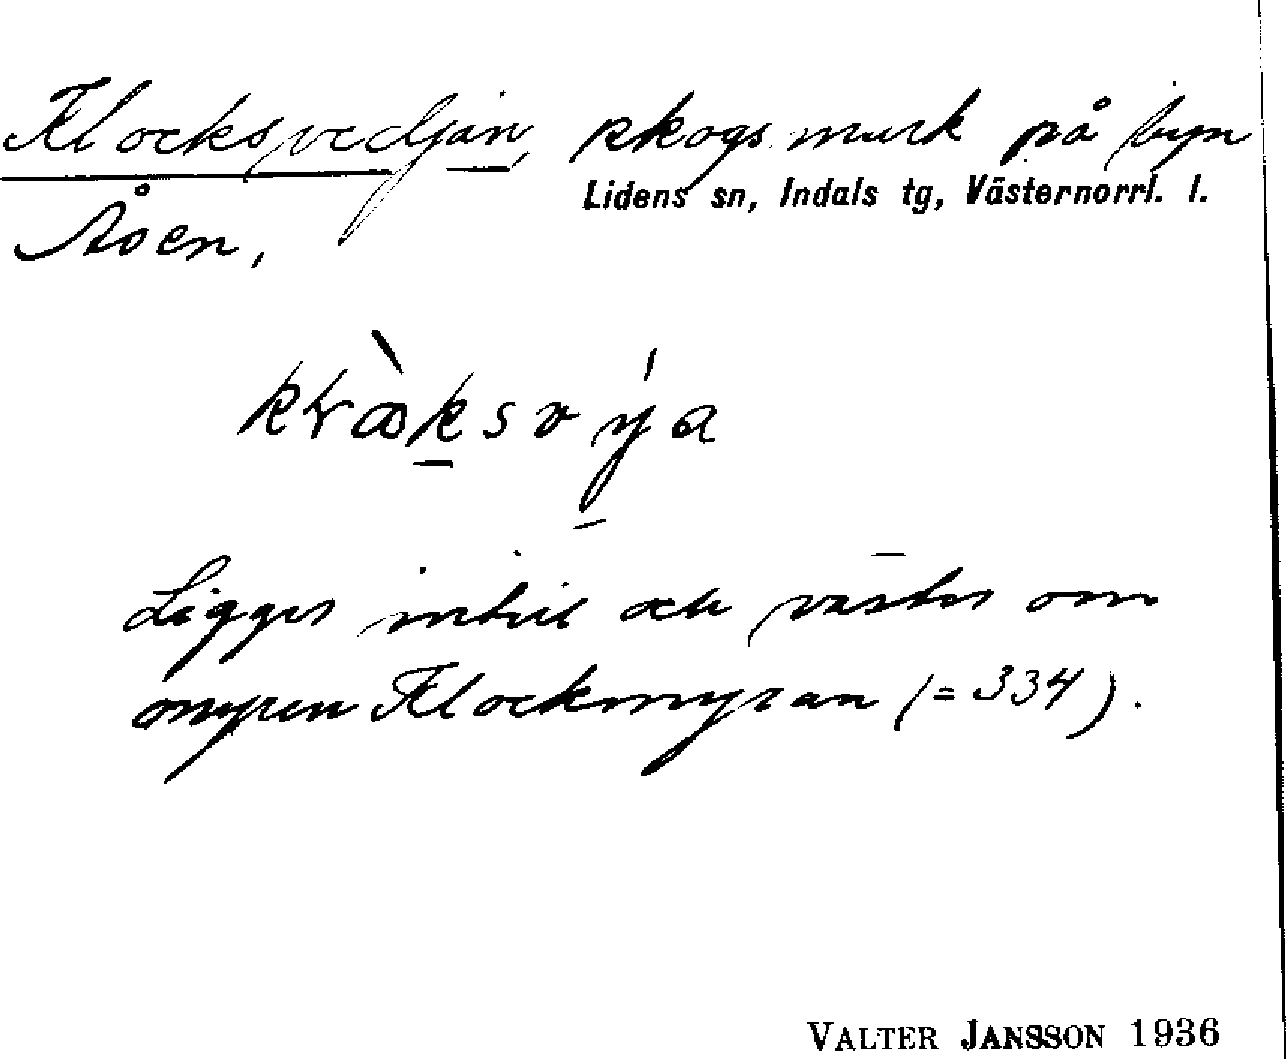 Klocksvedjan, skogsmark på byn
Lidens sn, Indals tg, Västernorrl. l.
Åsen,
Ligger intill och väster om
myren Klockmyran (= 334).
VALTER JANSSON 1936